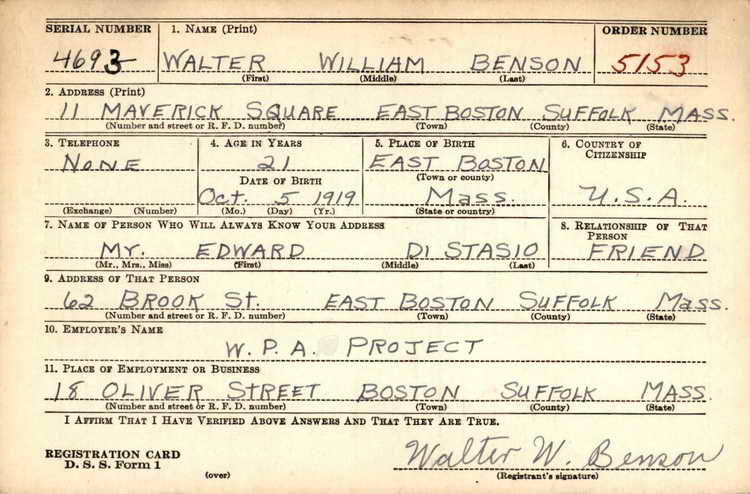 SERIAL NUMBER 1. NAME (Print) ORDER NUMBER
4693 WALTER WILLIAM BENSON 5153
(First) (Middle) (Last)
2. ADDRESS (Print)
11 MAVERICK SQUARE EAST BOSTON SUFFOLK MASS.
(Number and street or R. F. D. number) (Town) (County) (State)
3. TELEPHONE 4. AGE IN YEARS 5. PLACE OF BIRTH 6. COUNTRY OF CITIZENSHIP
NONE 21 EAST BOSTON
(Town or county)
DATE OF BIRTH
Oct. 5 1919 MASS. U.S.A.
(Exchange) (Number) (Mo.) (Day) (Yr.) (State or country)
7. NAME OF PERSON WHO WILL ALWAYS KNOW YOUR ADDRESS 8. RELATIONSHIP OF THAT PERSON
Mr. EDWARD DI STASIO FRIEND
(Mr., Mrs., Miss) (First) (Middle) (Last)
9. ADDRESS OF THAT PERSON
62 BROOK St. EAST BOSTON SUFFOLK MASS.
(Number and street or R. F. D. number) (Town) (County) (State)
10. EMPLOYER'S NAME
W.P.A. PROJECT
11. PLACE OF EMPLOYMENT OR BUSINESS
18 OLIVER STREET BOSTON SUFFOLK MASS.
(Number and street or R. F. D. number) (Town) (County) (State)
I AFFIRM THAT I HAVE VERIFIED ABOVE ANSWERS AND THAT THEY ARE TRUE.
REGISTRATION CARD
D. S. S. Form 1
(over)
Walter W. Benson
(Registrant's signature)